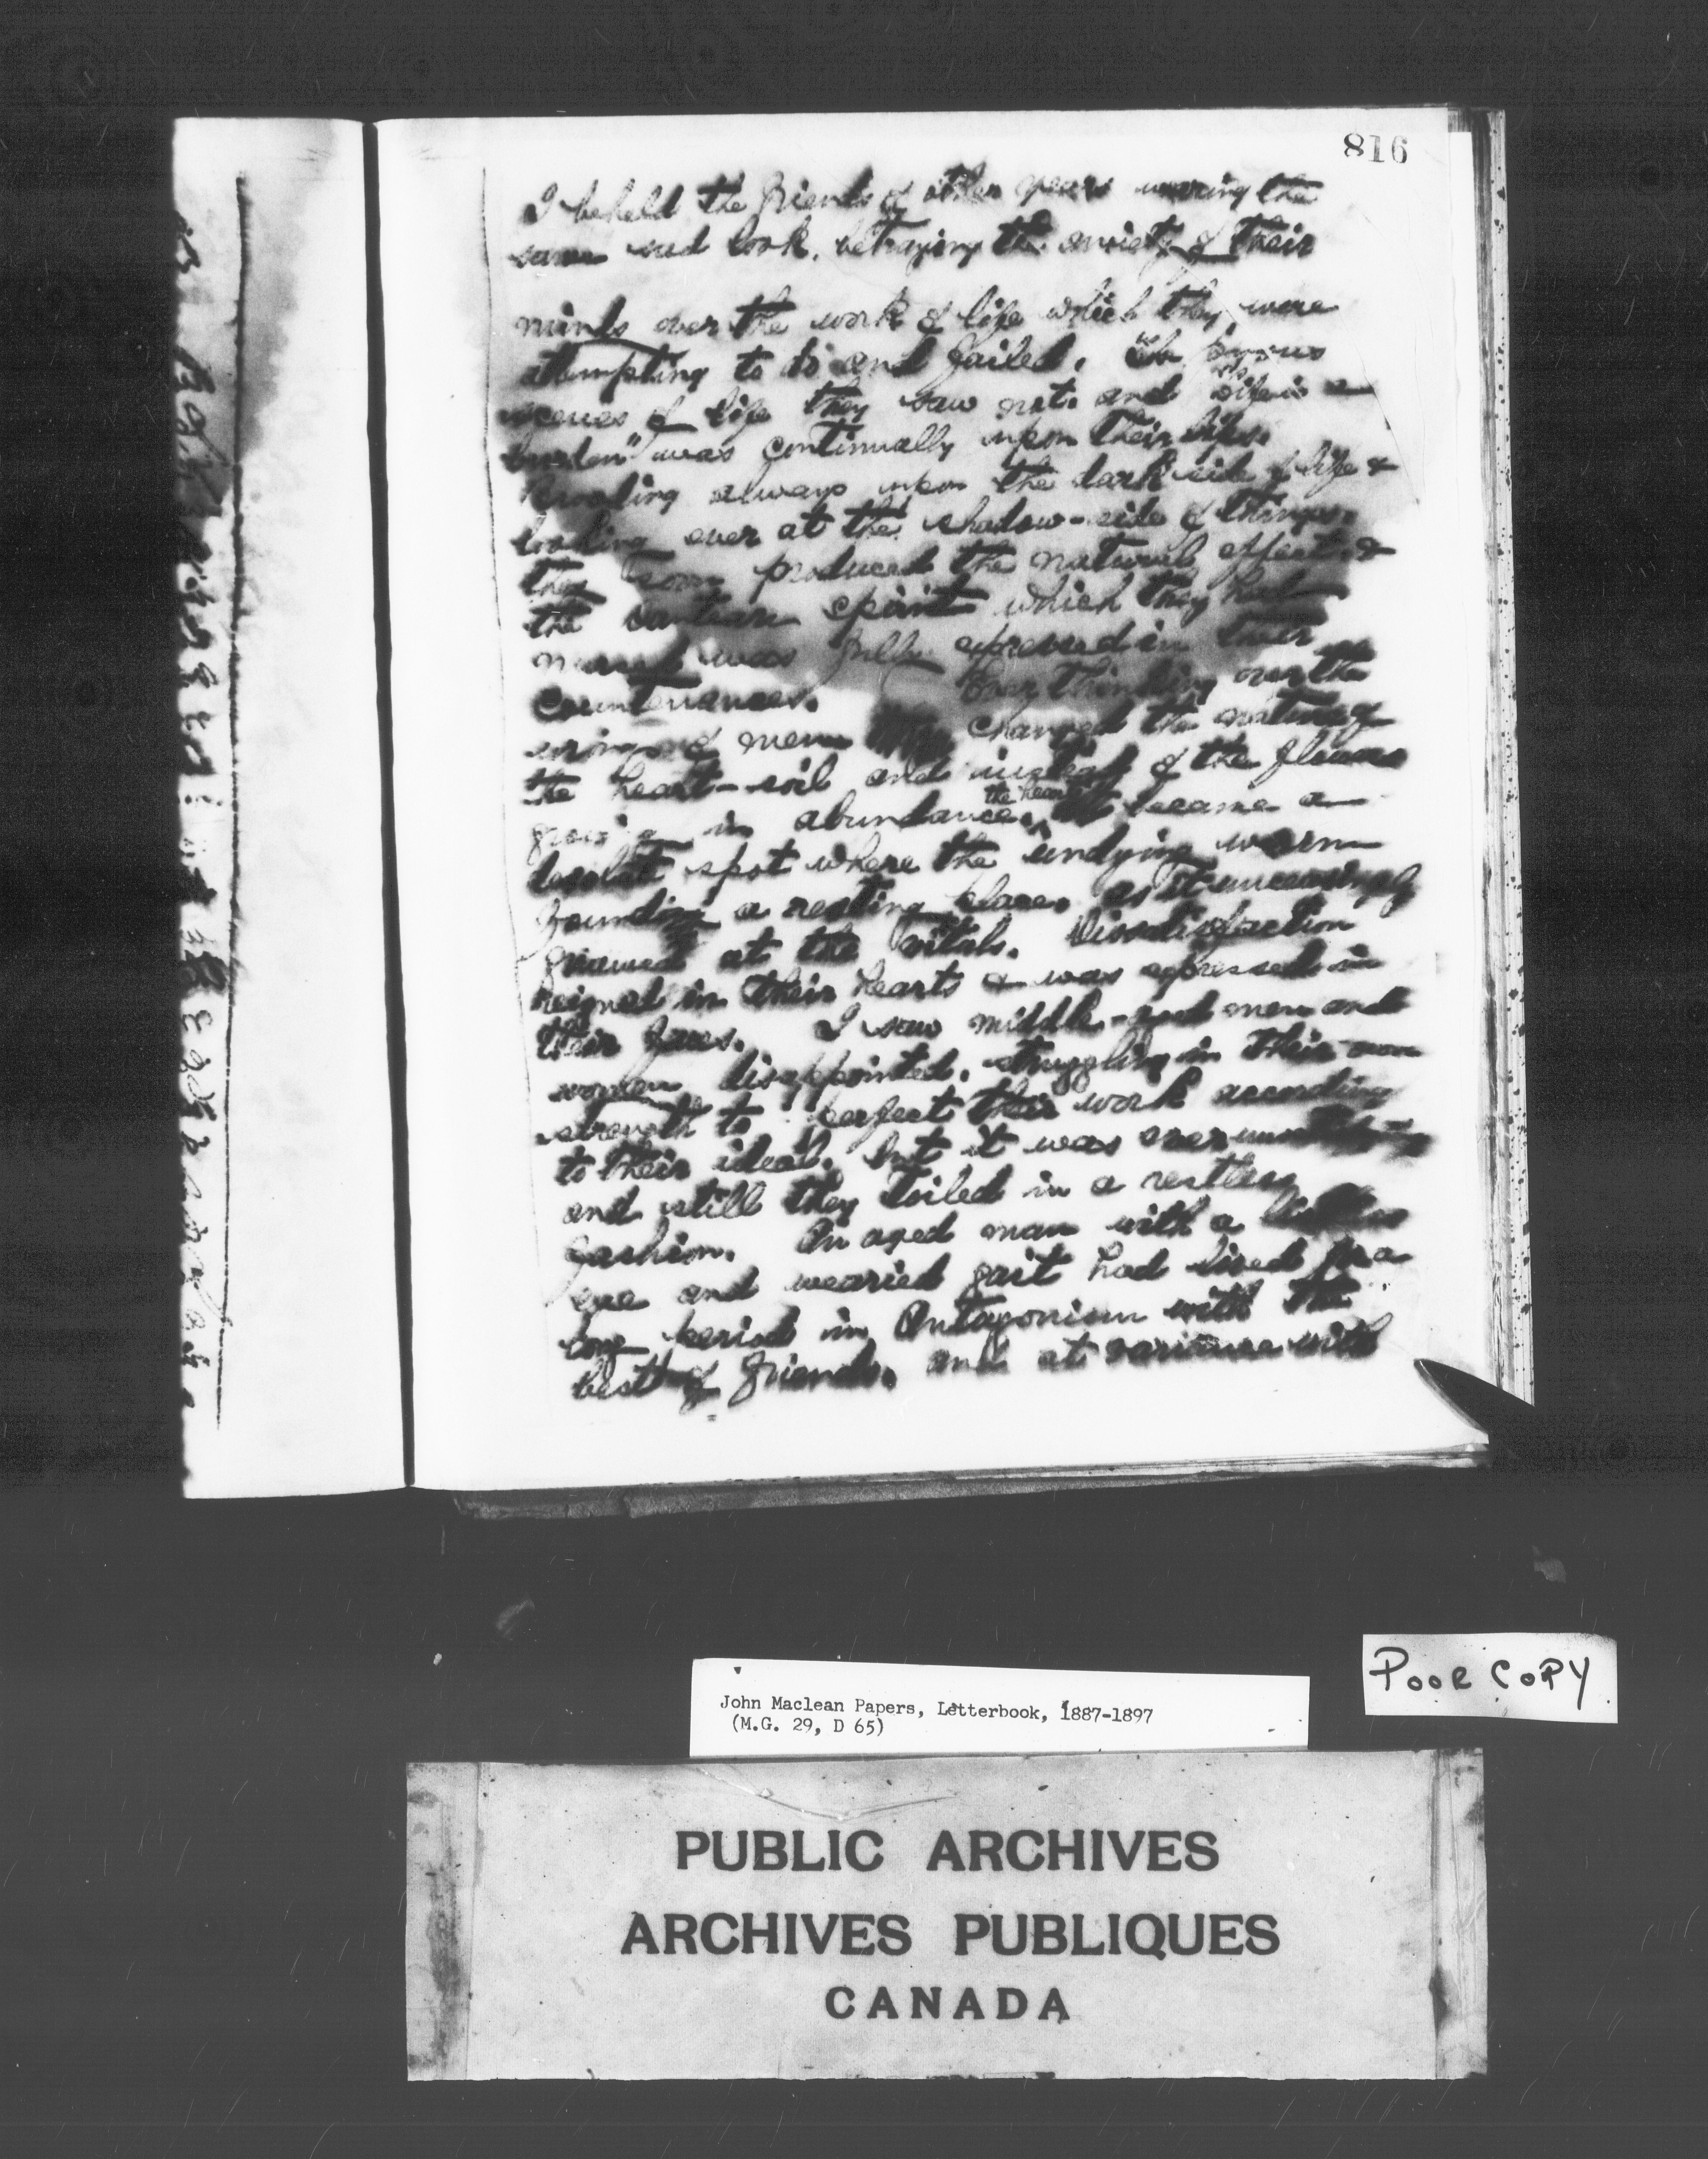 816
I beheld the friends of other years wearing the
same sad look, betraying the anxiety of their
minds over the work of life which they were
attempting to do and failed. The
scenes of life they saw not, and "life is a
burden" was continually upon their lips.
Brooding always upon the dark side of life &
looking ever at the shadow-side of things,
they soon produced the natural effect, &
the spirit which they had
was fully expressed in their
countenances. Ever thinking over the
of men changed the nature of
the heart-soil and instead of the flowers
growing in abundance, the heart became a
desolate spot where the undying worm
a resting place, as it unceasingly
gnawed at the vitals. Dissatisfaction
reigned in their hearts & was expressed in
their faces. I saw middle-aged men and
women, disappointed, struggling in their own
strength to perfect their work according
to their ideal, but it was ever
and still they toiled in a restless
fashion. An aged man with a
eye and wearied gait had lived for a
long period in antagonism with the
best of friends, and at variance with
POOR COPY
John Maclean Papers, Letterbook, 1887-1897
(M.G. 29, D 65)
PUBLIC ARCHIVES
ARCHIVES PUBLIQUES
CANADA